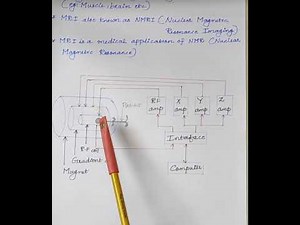 (eg Muscle, brain etc)
* MRI also known as NMRI (Nuclear Magnetic
Resonance Imaging)
* MRI is a medical application of NMR (Nuclear
Magnetic Resonance)
RF amp
X amp
Y amp
Z amp
Interface
Computer
RF coil
Gradient coil
Magnet